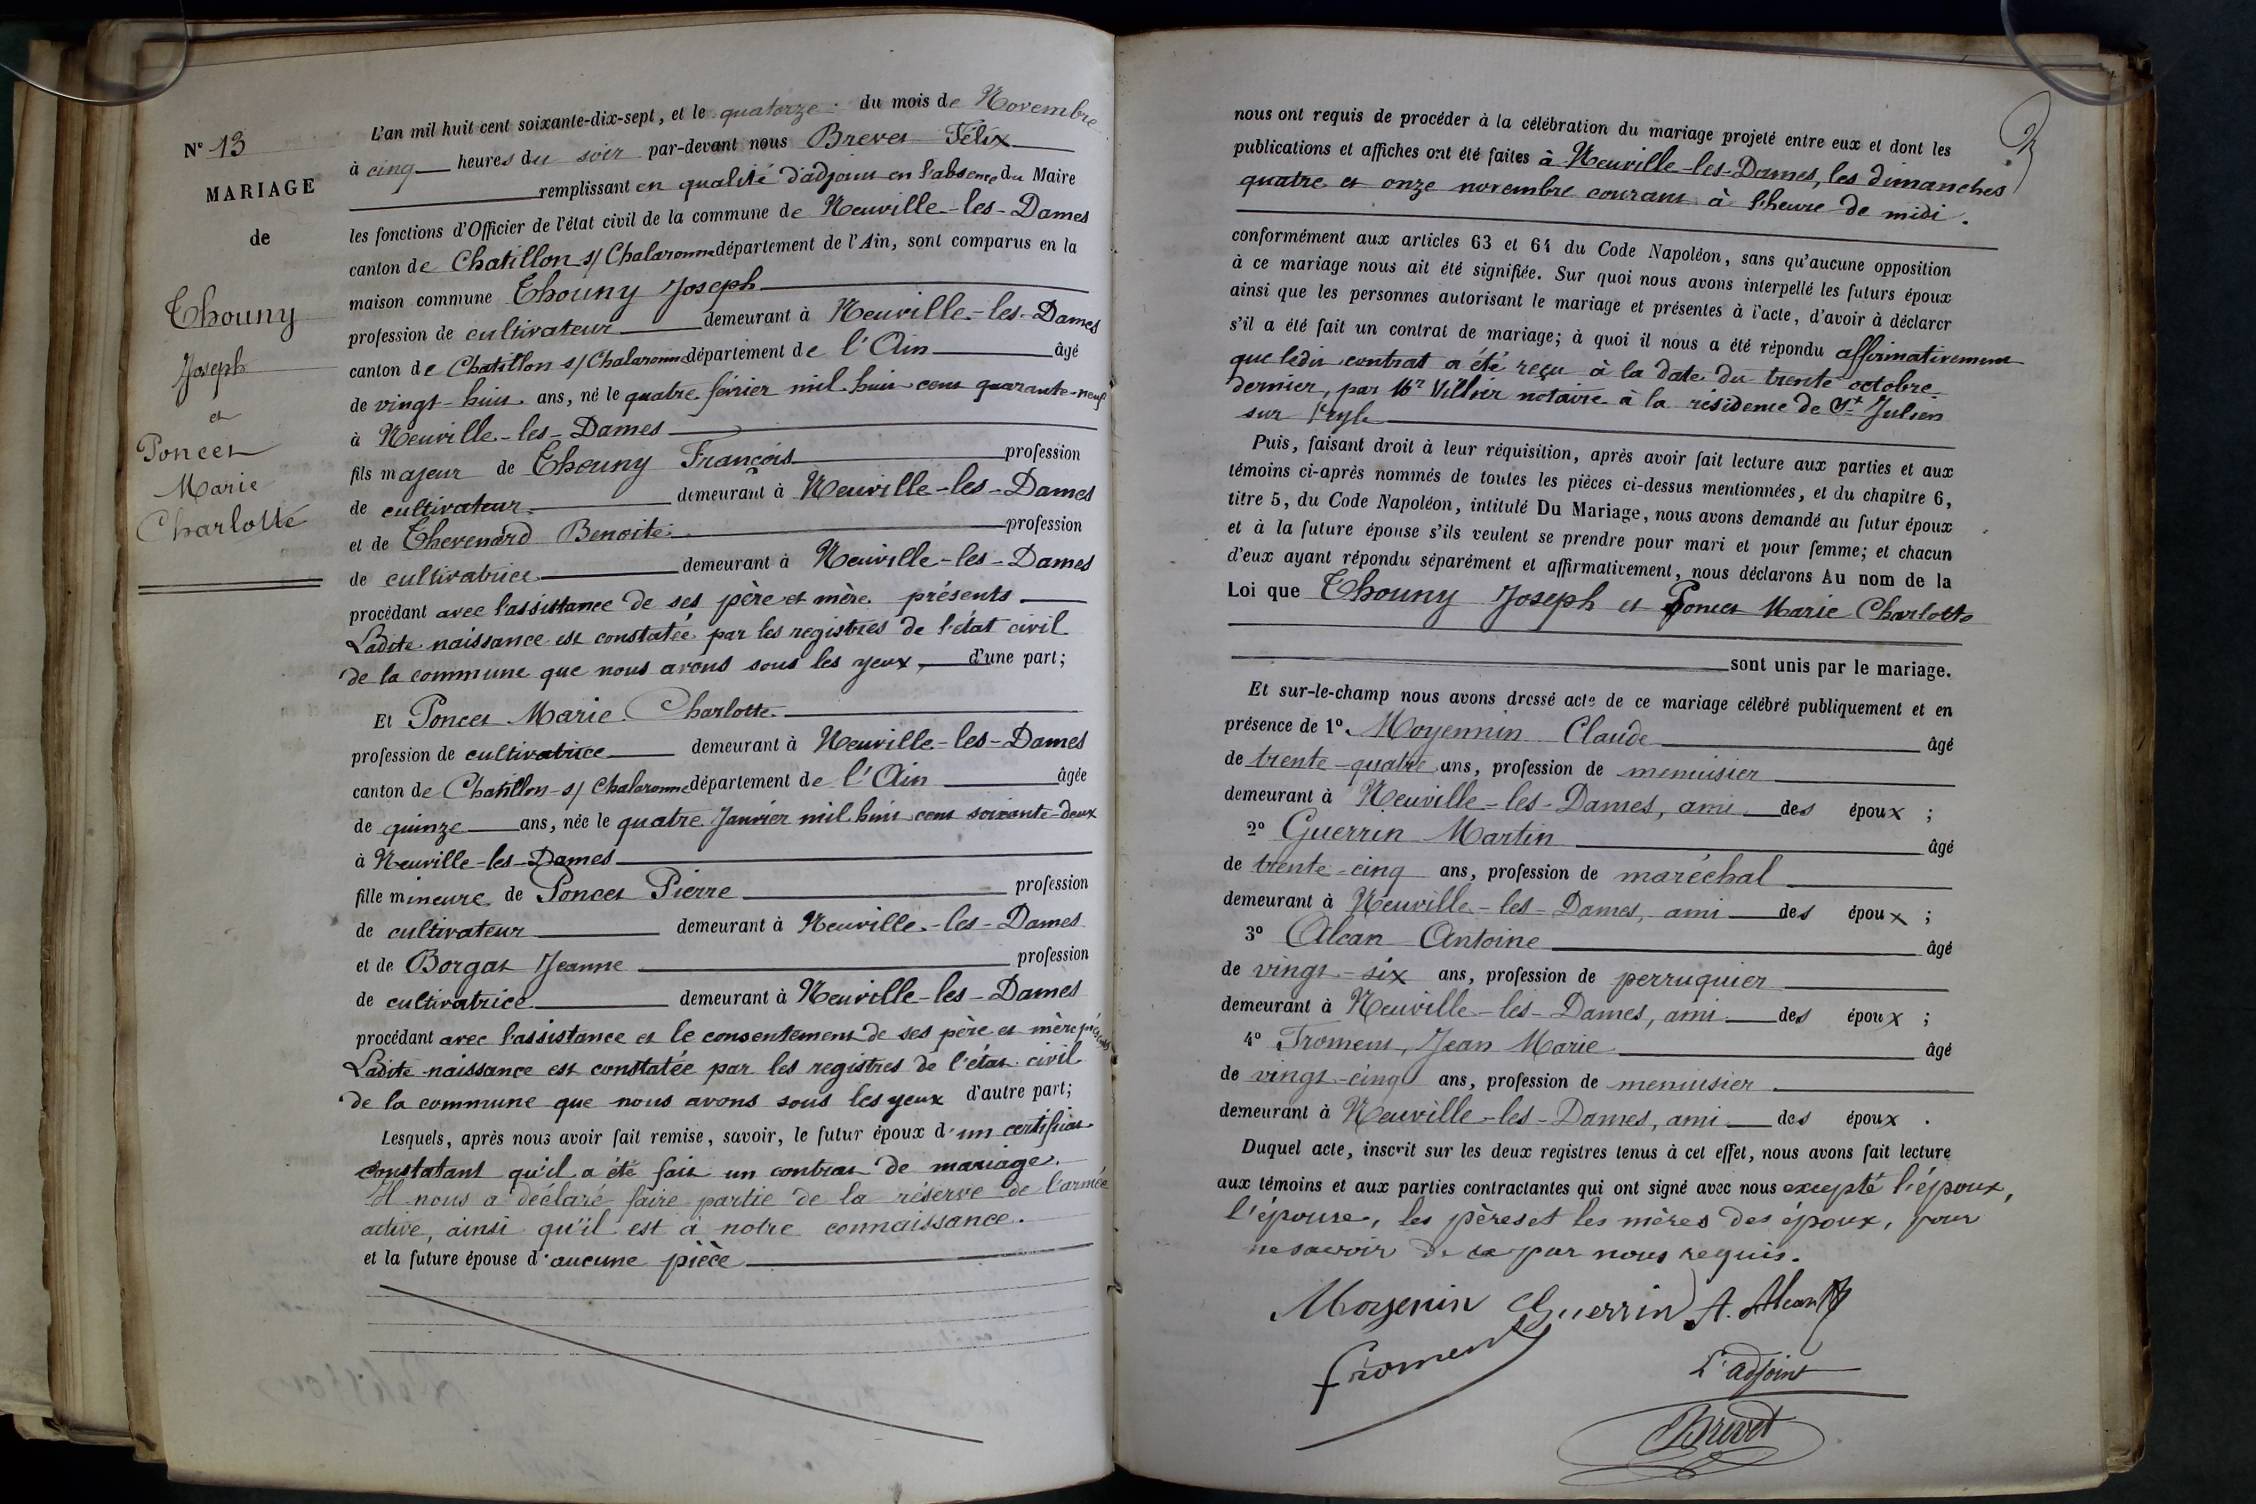 N° 13
MARIAGE
de
Thouny
Joseph
et
Poncet
Marie
Charlotte
L'an mil huit cent soixante-dix-sept, et le quatorze du mois de Novembre
à cinq heures du soir par-devant nous Brevet Félix
remplissant en qualité d'adjoint en l'absence du Maire
les fonctions d'Officier de l'état civil de la commune de Neuville-les-Dames
canton de Chatillon s/ Chalaronne département de l'Ain, sont comparus en la
maison commune Thouny Joseph
profession de cultivateur demeurant à Neuville-les-Dames
canton de Chatillon s/ Chalaronne département de l'Ain âgé
de vingt-huit ans, né le quatre février mil huit cent quarante-neuf
à Neuville-les-Dames
fils majeur de Thouny François profession
de cultivateur demeurant à Neuville-les-Dames
et de Thevenard Benoite profession
de cultivatrice demeurant à Neuville-les-Dames
procédant avec l'assistance de ses père et mère présents
Ladite naissance est constatée par les registres de l'état civil
de la commune que nous avons sous les yeux, d'une part;
Et Poncet Marie Charlotte
profession de cultivatrice demeurant à Neuville-les-Dames
canton de Chatillon-s/ Chalaronne département de l'Ain âgée
de quinze ans, née le quatre Janvier mil huit cent soixante-deux
à Neuville-les-Dames
fille mineure de Poncet Pierre profession
de cultivateur demeurant à Neuville-les-Dames
et de Borgat Jeanne profession
de cultivatrice demeurant à Neuville-les-Dames
procédant avec l'assistance et le consentement de ses père et mère présents
Ladite naissance est constatée par les registres de l'état civil
de la commune que nous avons sous les yeux d'autre part;
Lesquels, après nous avoir fait remise, savoir, le futur époux d'un certificat
constatant qu'il a été fait un contrat de mariage.
Il nous a déclaré faire partie de la réserve de l'armée
active, ainsi qu'il est à notre connaissance.
et la future épouse d'aucune pièce
nous ont requis de procéder à la célébration du mariage projeté entre eux et dont les
publications et affiches ont été faites à Neuville-les-Dames, les dimanches
quatre et onze novembre courant à l'heure de midi.
conformément aux articles 63 et 64 du Code Napoléon, sans qu'aucune opposition
à ce mariage nous ait été signifiée. Sur quoi nous avons interpellé les futurs époux
ainsi que les personnes autorisant le mariage et présentes à l'acte, d'avoir à déclarer
s'il a été fait un contrat de mariage; à quoi il nous a été répondu affirmativement
que ledit contrat a été reçu à la date du trente octobre
dernier, par Mr notaire à la résidence de St Julien
sur
Puis, faisant droit à leur réquisition, après avoir fait lecture aux parties et aux
témoins ci-après nommés de toutes les pièces ci-dessus mentionnées, et du chapitre 6,
titre 5, du Code Napoléon, intitulé Du Mariage, nous avons demandé au futur époux
et à la future épouse s'ils veulent se prendre pour mari et pour femme; et chacun
d'eux ayant répondu séparément et affirmativement, nous déclarons Au nom de la
Loi que Thouny Joseph et Poncet Marie Charlotte
sont unis par le mariage.
Et sur-le-champ nous avons dressé acte de ce mariage célébré publiquement et en
présence de 1° Moyennin Claude âgé
de trente-quatre ans, profession de menuisier
demeurant à Neuville-les-Dames, ami des époux ;
2° Guerrin Martin âgé
de trente-cinq ans, profession de maréchal
demeurant à Neuville-les-Dames, ami des époux ;
3° Alcan Antoine âgé
de vingt-six ans, profession de perruquier
demeurant à Neuville-les-Dames, ami des époux ;
4° Froment, Jean Marie âgé
de vingt-cinq ans, profession de menuisier
demeurant à Neuville-les-Dames, ami des époux .
Duquel acte, inscrit sur les deux registres tenus à cet effet, nous avons fait lecture
aux témoins et aux parties contractantes qui ont signé avec nous excepté l'époux,
l'épouse, les pères et les mères des époux, pour
ne savoir de ce par nous requis.
Moyenin Guerrin A. Alcan
Froment
L'adjoint
Brevet